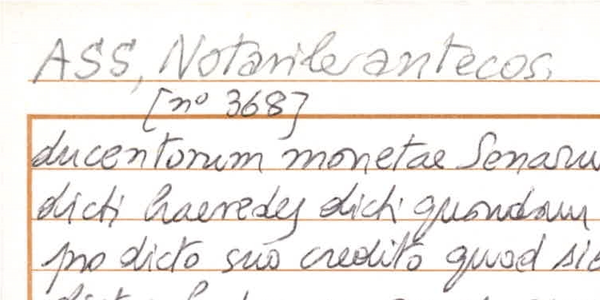 ASS, Notarile antecos.
[nº 368]
ducentorum monetae Senaru
dicti haeredes dicti quondam
pro dicto suo credito quod sic